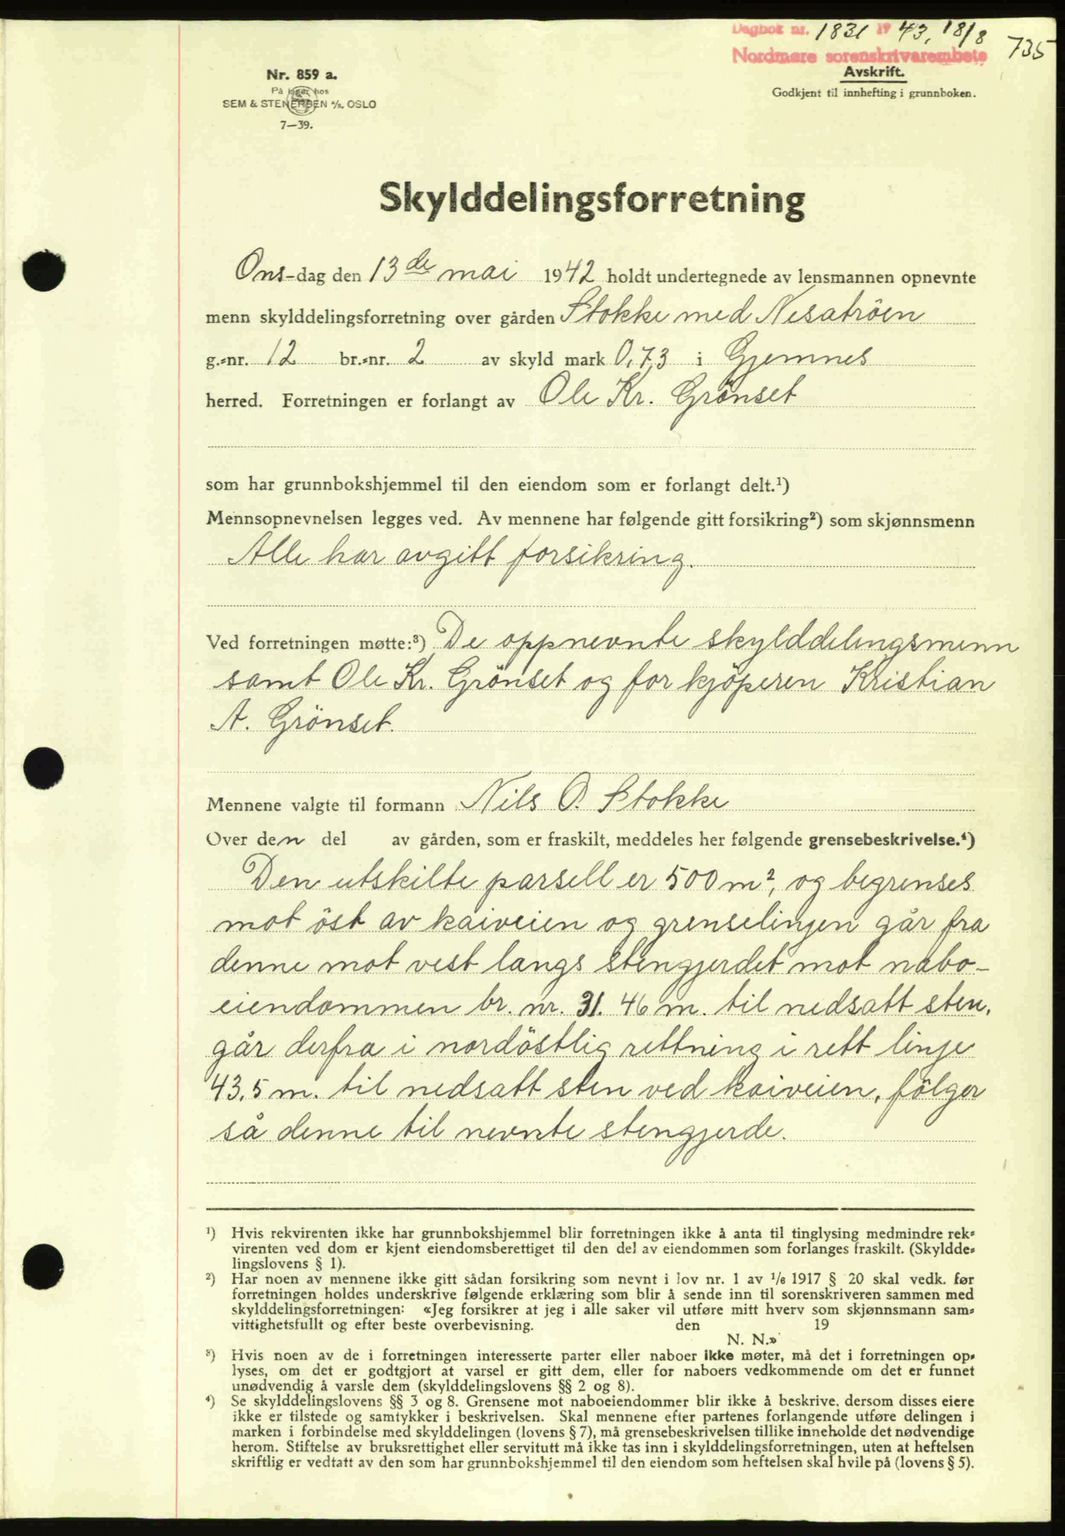 Dagbok nr. 1831 1943, 18/8
735
Nordmøre sorenskrivarembete
Nr. 859 a.
På lager hos
SEM & STENERSEN A/S, OSLO
7—39.
Avskrift.
Godkjent til innhefting i grunnboken.
Skylddelingsforretning
Ons-dag den 13de mai 1942 holdt undertegnede av lensmannen opnevnte
menn skylddelingsforretning over gården Stokke med Nesatröen
g.-nr. 12 br.-nr. 2 av skyld mark 0,73 i Gjemnes
herred. Forretningen er forlangt av Ole Kr. Grönset
som har grunnbokshjemmel til den eiendom som er forlangt delt.¹)
Mennsopnevnelsen legges ved. Av mennene har følgende gitt forsikring²) som skjønnsmenn
Alle har avgitt forsikring.
Ved forretningen møtte:³) De oppnevnte skylddelingsmenn
samt Ole Kr. Grönset og for kjöperen Kristian
A. Grönset.
Mennene valgte til formann Nils O. Stokke
Over den del av gården, som er fraskilt, meddeles her følgende grensebeskrivelse.⁴)
Den utskilte parsell er 500 m², og begrenses
mot öst av kaiveien og grenselinjen går fra
denne mot vest langs stengjerdet mot nabo-
eiendommen br. nr. 31. 46 m. til nedsatt sten,
går derfra i nordöstlig rettning i rett linje
43,5 m. til nedsatt sten ved kaiveien, fölger
så denne til nevnte stengjerde.
¹) Hvis rekvirenten ikke har grunnbokshjemmel blir forretningen ikke å anta til tinglysing medmindre rek-
virenten ved dom er kjent eiendomsberettiget til den del av eiendommen som forlanges fraskilt. (Skyldde-
lingslovens § 1).
²) Har noen av mennene ikke gitt sådan forsikring som nevnt i lov nr. 1 av 1/6 1917 § 20 skal vedk. før
forretningen holdes underskrive følgende erklæring som blir å sende inn til sorenskriveren sammen med
skylddelingsforretningen: «Jeg forsikrer at jeg i alle saker vil utføre mitt hverv som skjønnsmann sam-
vittighetsfullt og efter beste overbevisning. den 19
N. N.»
³) Hvis noen av de i forretningen interesserte parter eller naboer ikke møter, må det i forretningen op-
lyses, om det er godtgjort at varsel er gitt dem, eller for naboers vedkommende om det er funnet
unødvendig å varsle dem (skylddelingslovens §§ 2 og 8).
⁴) Se skylddelingslovens §§ 3 og 8. Grensene mot naboeiendommer blir ikke å beskrive, dersom disses eiere
ikke er tilstede og samtykker i beskrivelsen. Skal mennene efter partenes forlangende utføre delingen i
marken i forbindelse med skylddelingen (lovens § 7), må grensebeskrivelsen tillike inneholde det nødvendige
herom. Stiftelse av bruksrettighet eller servitutt må ikke tas inn i skylddelingsforretningen, uten at heftelsen
skriftlig er vedtatt av den som har grunnbokshjemmel til den eiendom som heftelsen skal hvile på (lovens § 5).